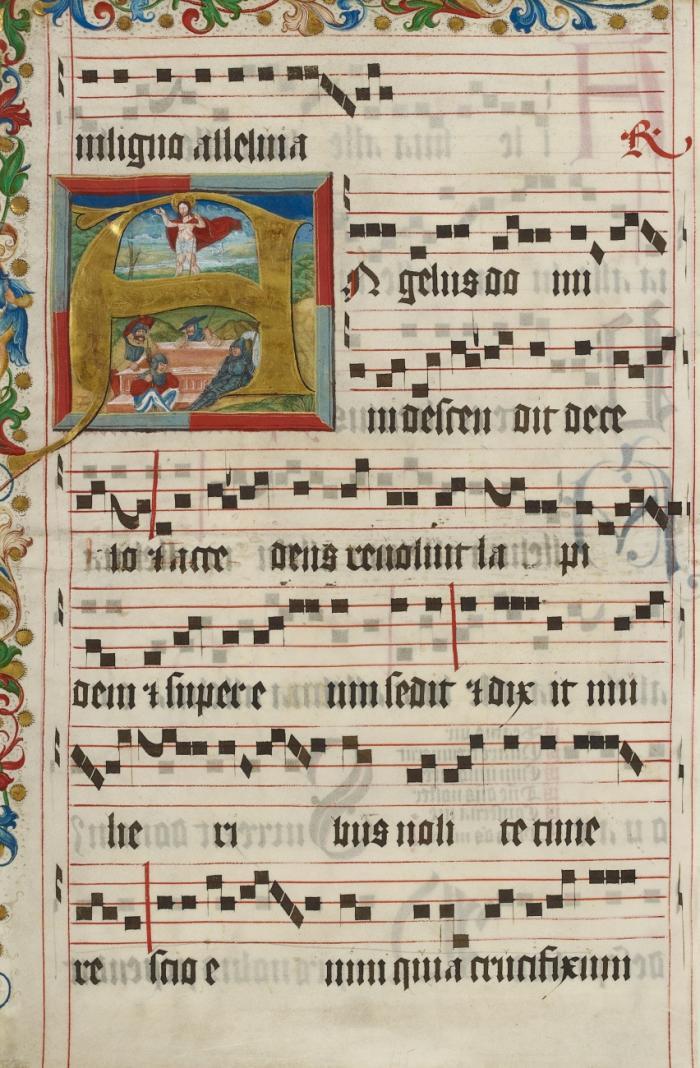 in ligno alleluia
R.
Angelus do mi
ni descen dit de ce
lo & acce dens reuoluit la pi
dem & super e um sedit & dix it mu
lie ri bus noli te time
re scio e nim quia crucifixum